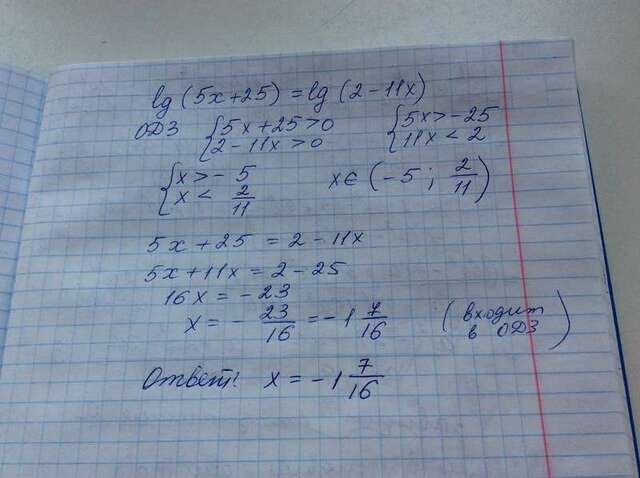 lg (5x+25) = lg (2-11x)
ОДЗ { 5x+25>0 { 5x>-25
2-11x>0 11x<2
{ x>-5 x∈ (-5; 2/11)
x< 2/11
5x+25 = 2-11x
5x+11x = 2-25
16x = -23
x = - 23/16 = -1 7/16 (входит
в ОДЗ)
Ответ: x = -1 7/16